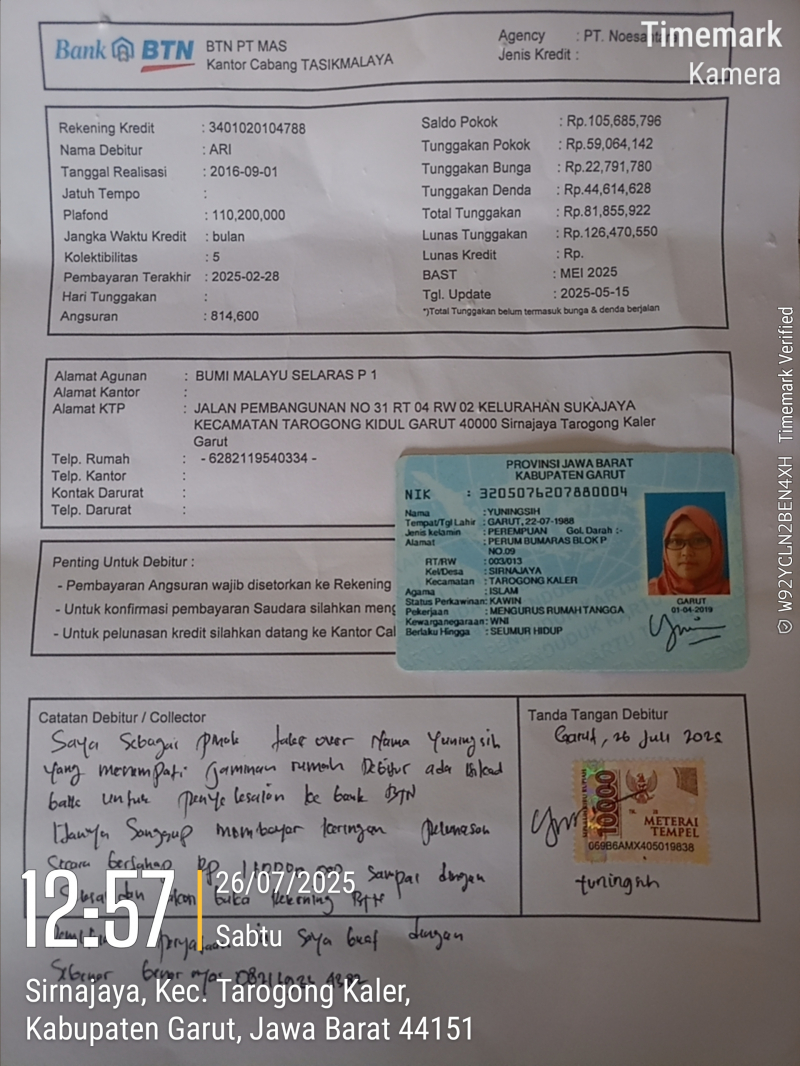 Timemark
Kamera
Bank BTN
BTN PT MAS
Kantor Cabang TASIKMALAYA
Agency : PT.
Jenis Kredit :
Rekening Kredit : 3401020104788
Nama Debitur : ARI
Tanggal Realisasi : 2016-09-01
Jatuh Tempo :
Plafond : 110,200,000
Jangka Waktu Kredit : bulan
Kolektibilitas : 5
Pembayaran Terakhir : 2025-02-28
Hari Tunggakan :
Angsuran : 814,600
Saldo Pokok : Rp.105,685,796
Tunggakan Pokok : Rp.59,064,142
Tunggakan Bunga : Rp.22,791,780
Tunggakan Denda : Rp.44,614,628
Total Tunggakan : Rp.81,855,922
Lunas Tunggakan : Rp.126,470,550
Lunas Kredit : Rp.
BAST : MEI 2025
Tgl. Update : 2025-05-15
*)Total Tunggakan belum termasuk bunga & denda berjalan
Alamat Agunan : BUMI MALAYU SELARAS P 1
Alamat Kantor :
Alamat KTP : JALAN PEMBANGUNAN NO 31 RT 04 RW 02 KELURAHAN SUKAJAYA
KECAMATAN TAROGONG KIDUL GARUT 40000 Sirnajaya Tarogong Kaler
Garut
Telp. Rumah : - 6282119540334 -
Telp. Kantor :
Kontak Darurat :
Telp. Darurat :
PROVINSI JAWA BARAT
KABUPATEN GARUT
NIK : 3205076207880004
Nama : YUNINGSIH
Tempat/Tgl Lahir : GARUT, 22-07-1988
Jenis kelamin : PEREMPUAN Gol. Darah : -
Alamat : PERUM BUMARAS BLOK P
NO.09
RT/RW : 003/013
Kel/Desa : SIRNAJAYA
Kecamatan : TAROGONG KALER
Agama : ISLAM
Status Perkawinan: KAWIN
Pekerjaan : MENGURUS RUMAH TANGGA
Kewarganegaraan: WNI
Berlaku Hingga : SEUMUR HIDUP
GARUT
01-04-2019
Penting Untuk Debitur :
- Pembayaran Angsuran wajib disetorkan ke Rekening
- Untuk konfirmasi pembayaran Saudara silahkan
- Untuk pelunasan kredit silahkan datang ke Kantor
Catatan Debitur / Collector
Saya Sebagai take over Nama Yuningsih
yang menempati Jaminan rumah Debitur ada
untuk ke bank BTN
Hanya Sanggup membayar keringan pelunasan
Secara bertahap Rp sampai dengan
buka Rekening BTN
Saya buat dengan
Tanda Tangan Debitur
Garut, 26 Juli 2025
10000
METERAI
TEMPEL
069B6AMX405019838
Yuningsih
12:57
26/07/2025
Sabtu
Sirnajaya, Kec. Tarogong Kaler,
Kabupaten Garut, Jawa Barat 44151
W92YCLN2BEN4XH Timemark Verified